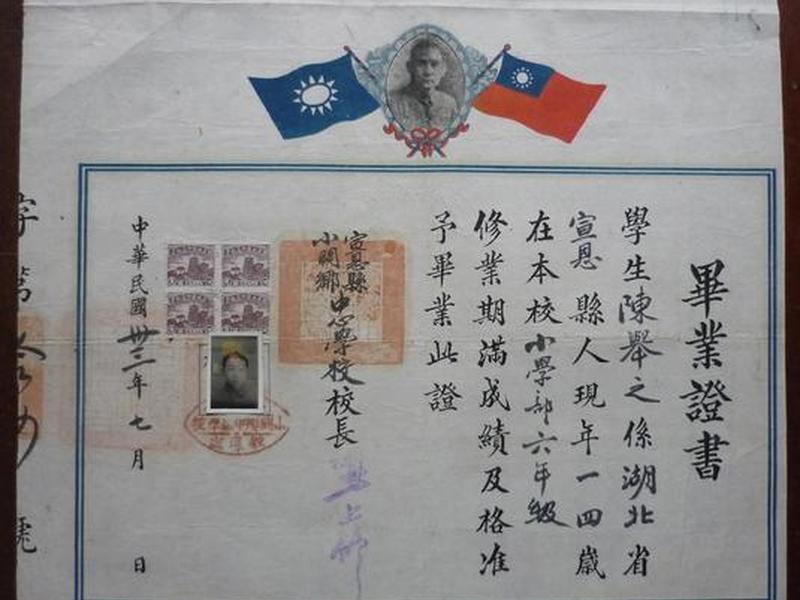 畢業證書
學生陳舉之係湖北省
宣恩縣人現年一四歲
在本校小學部六年級
修業期滿成績及格准
予畢業此證
宣恩縣
小關鄉
中心學校校長
中華民國卅三年七月 日
字第
號